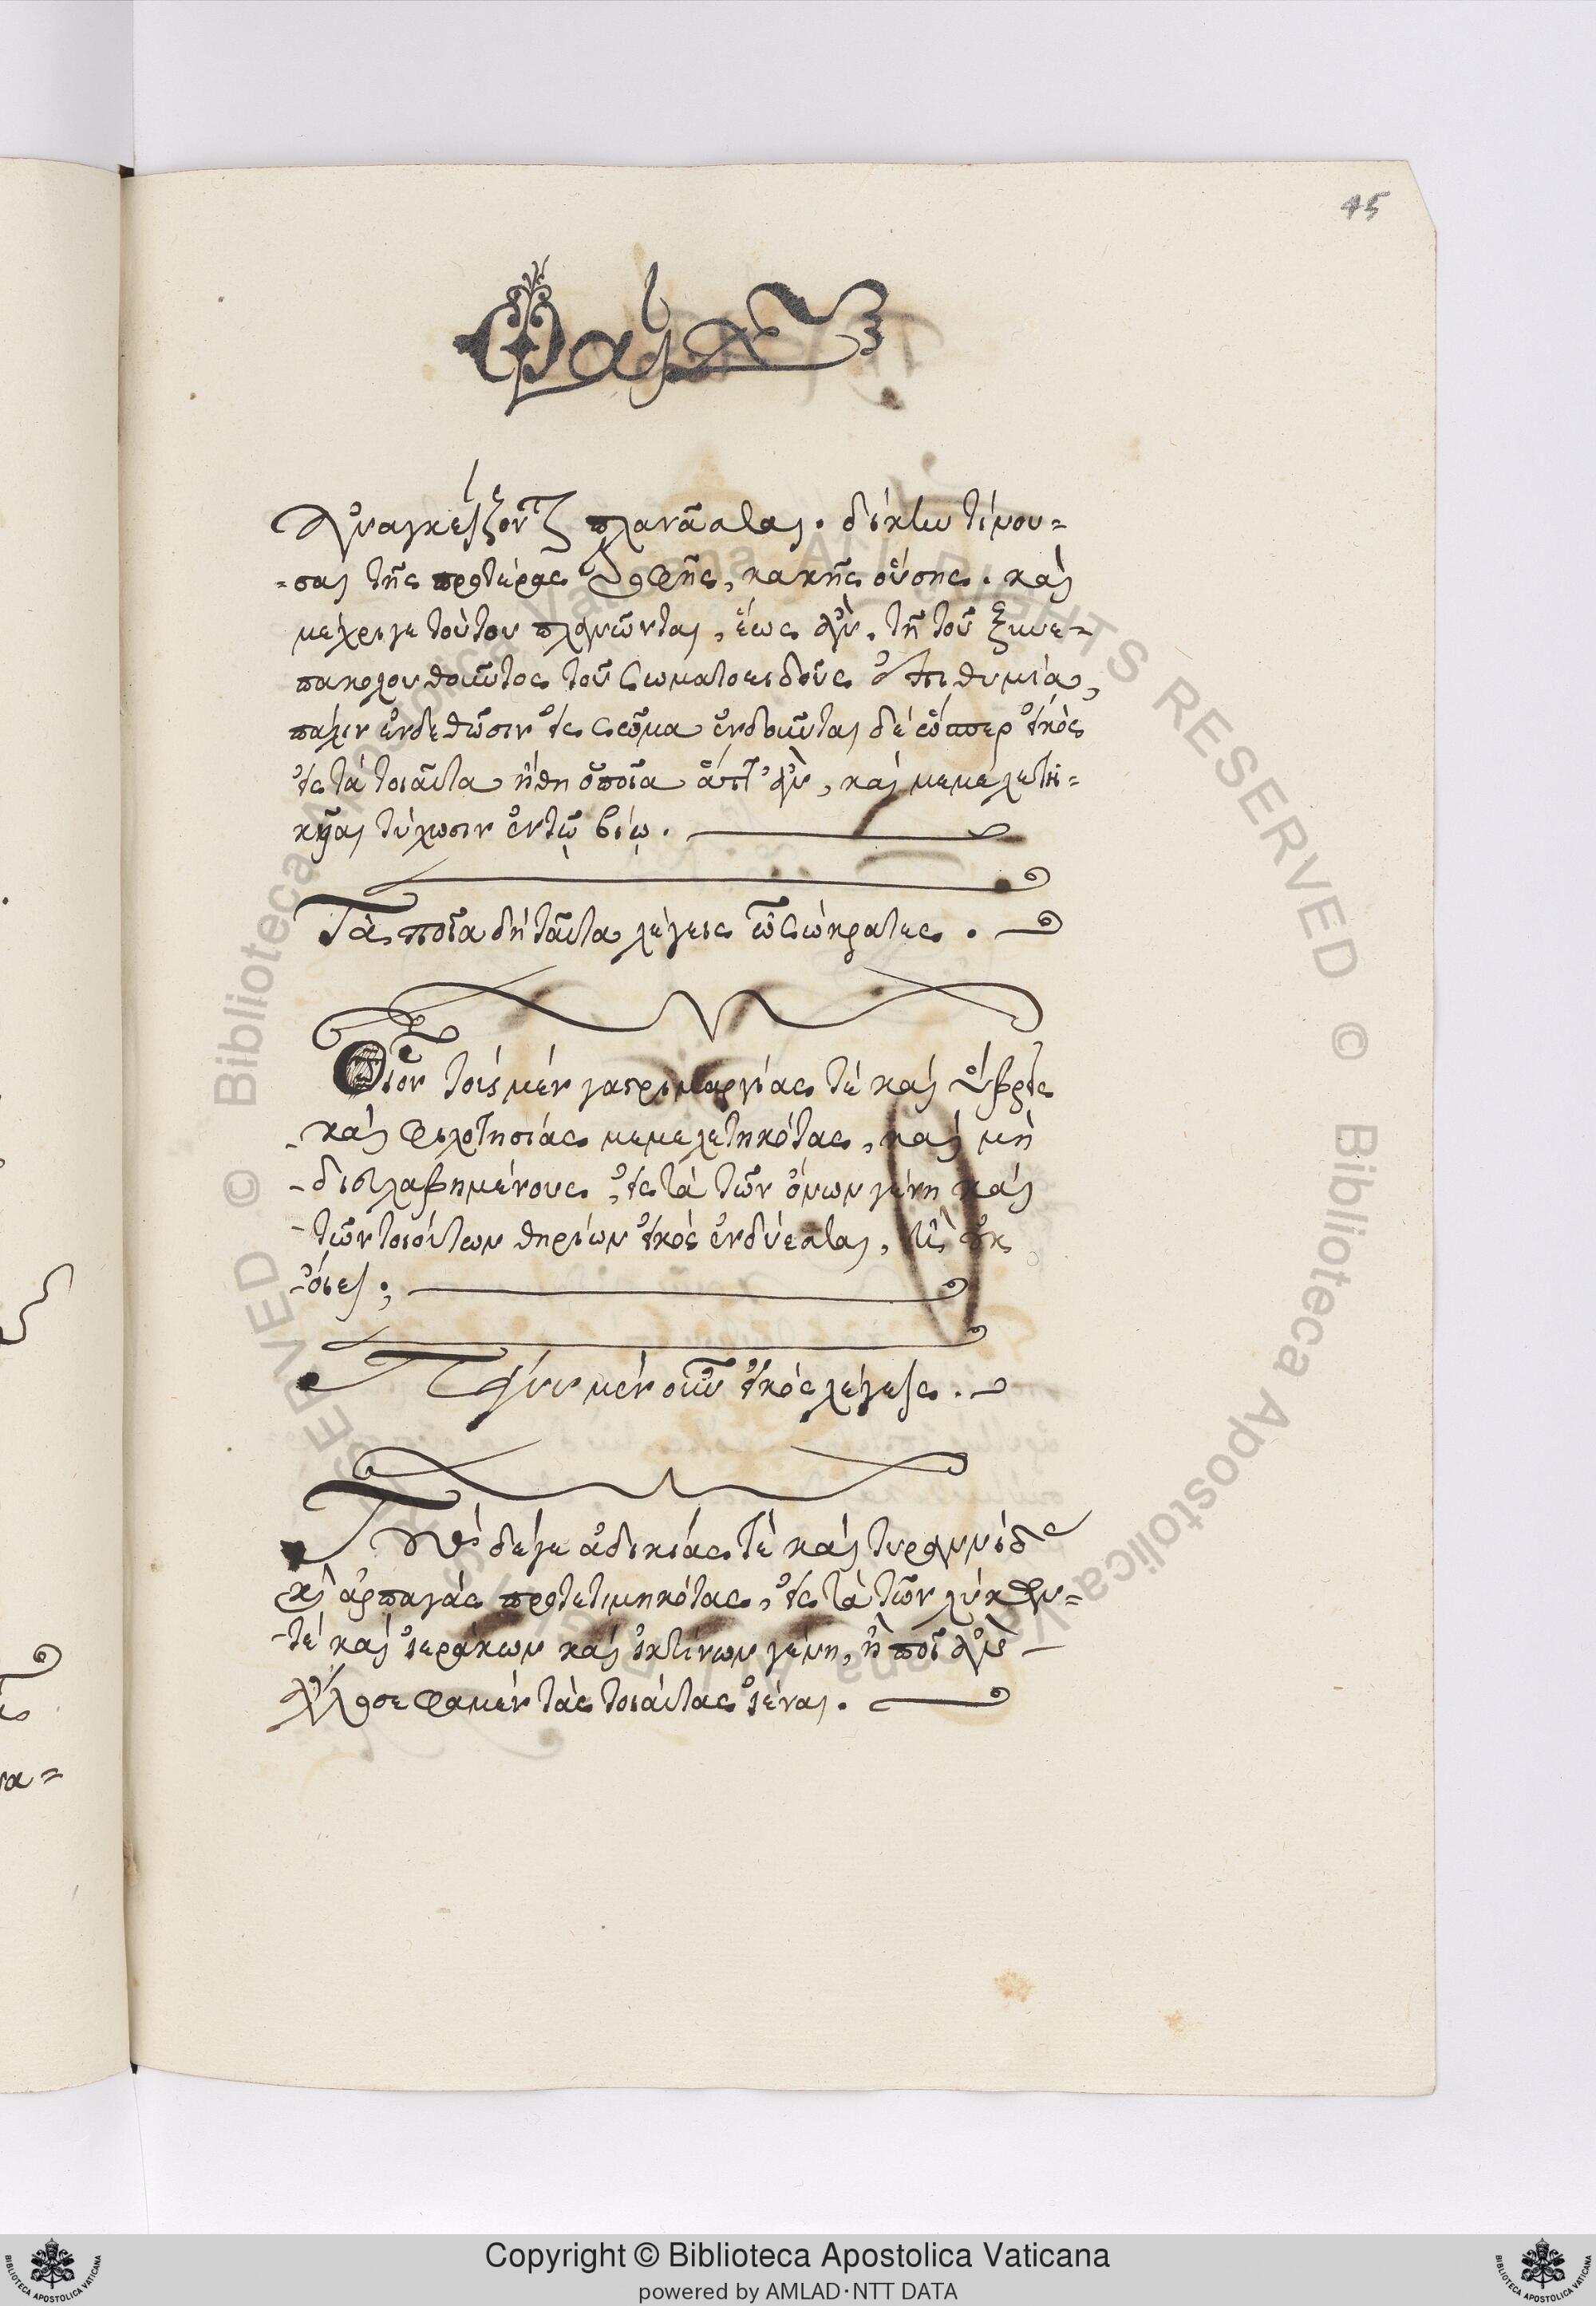 45
Φαίδων
Ἀναγκάζονται πλανᾶσθαι. δίκην τίνου=
=σαι τῆς προτέρας τροφῆς, κακῆς οὔσης. καὶ
μέχρι γε τούτου πλανῶνται, ἕως ἂν τῇ τοῦ ξυνε=
πακολουθοῦντος τοῦ σωματοειδοῦς ἐπιθυμίᾳ,
πάλιν ἐνδεθῶσιν εἰς σῶμα ἐνδοῦνται δὲ ὥσπερ εἰκὸς
εἰς τὰ τοιαῦτα ἤθη ὁποῖα ἅττ' ἂν, καὶ μεμελετη=
κυῖαι τύχωσιν ἐν τῷ βίῳ.
Τὰ ποῖα δὴ ταῦτα λέγεις ὦ Σώκρατες.
Οἷον τοὺς μὲν γαστριμαργίας τὲ καὶ ὕβρεις
-καὶ φιλοτησίας μεμελετηκότας, καὶ μὴ
-διευλαβημένους, εἰς τὰ τῶν ὄνων γένη καὶ
-τῶν τοιούτων θηρίων εἰκὸς ἐνδύεσθαι, ἢ οὐκ
-οἴει;
Πάνυ μὲν οὖν εἰκὸς λέγεις.
Τοὺς δέ γε ἀδικίας τὲ καὶ τυραννίδας
καὶ ἁρπαγὰς προτετιμηκότας, εἰς τὰ τῶν λύκων=
-τὲ καὶ ἱεράκων καὶ ἰκτίνων γένη, ἢ ποῖ ἂν
ἄλλοσε φαμὲν τὰς τοιαύτας ἰέναι.
Copyright © Biblioteca Apostolica Vaticana
powered by AMLAD·NTT DATA